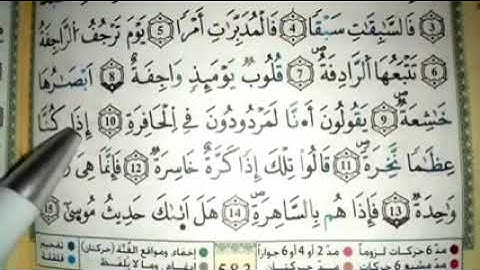 ③ فَالسَّٰبِقَٰتِ سَبْقًا ④ فَالْمُدَبِّرَٰتِ أَمْرًا ⑤ يَوْمَ تَرْجُفُ الرَّاجِفَةُ
⑥ تَتْبَعُهَا الرَّادِفَةُ ⑦ قُلُوبٌ يَوْمَئِذٍ وَاجِفَةٌ ⑧ أَبْصَٰرُهَا
خَٰشِعَةٌ ⑨ يَقُولُونَ أَءِنَّا لَمَرْدُودُونَ فِي الْحَافِرَةِ ⑩ إِذَا كُنَّا
عِظَٰمًا نَّخِرَةً ⑪ قَالُوا تِلْكَ إِذًا كَرَّةٌ خَاسِرَةٌ ⑫ فَإِنَّمَا هِيَ
وَٰحِدَةٌ ⑬ فَإِذَا هُم بِالسَّاهِرَةِ ⑭ هَلْ أَتَىٰكَ حَدِيثُ مُوسَىٰ ⑮
مدّ ٦ حركات لزوماً مدّ ٢ أو ٤ أو ٦ جوازاً إخفاء ومواقع الغُنَّة (حركتان) تفخيم
مدّ حركتان قلقلة